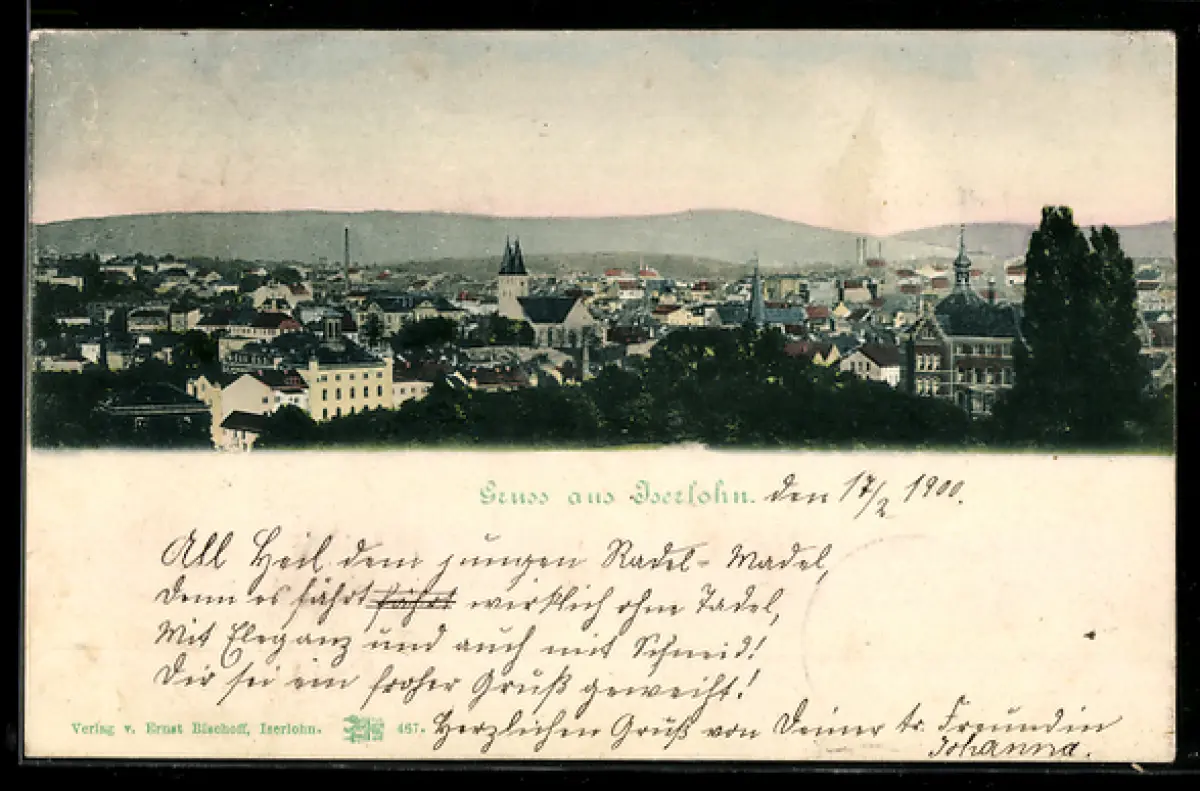 Gruss aus Iserlohn. den 17/2 1900.
All Heil dem jungen Radel-Madel,
Denn es fährt fährt wirklich ohne Tadel,
Mit Eleganz und auch mit Schneid!
Dir sei ein froher Gruß geweiht!
Herzlichen Gruß von Deiner tr. Freundin
Johanna.
Verlag v. Ernst Bischoff, Iserlohn. 467.